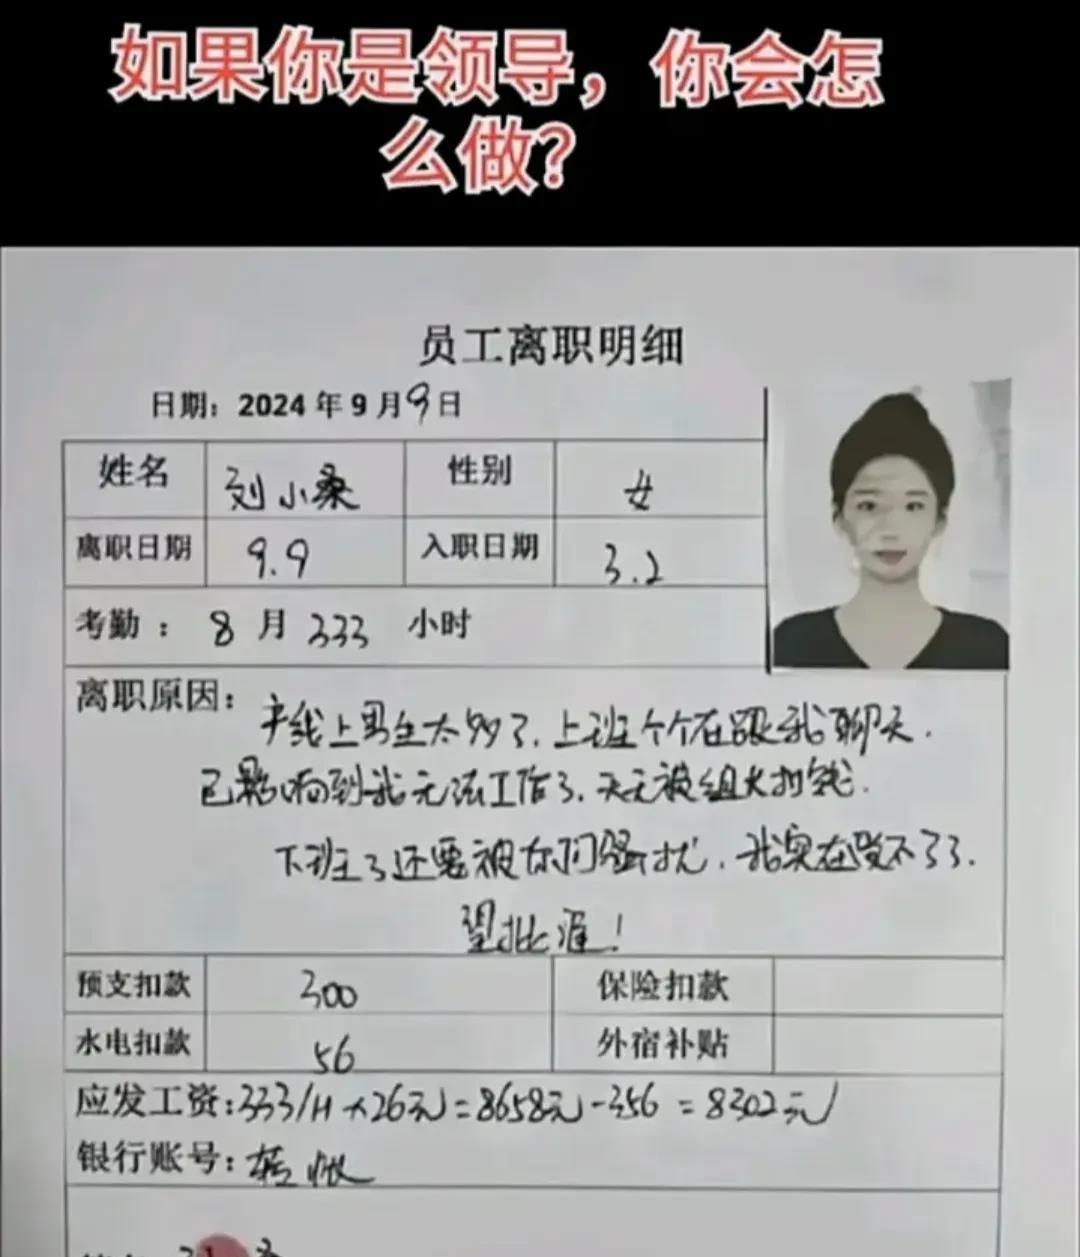 如果你是领导，你会怎
么做？
员工离职明细
日期：2024年9月9日
姓名 刘小桑 性别 女
离职日期 9.9 入职日期 3.2
考勤：8月333小时
离职原因：产线上男生太多了，上班个个在跟我聊天.
已影响到我无法工作了，天天被组长扣钱.
下班了还要被他们骚扰，我实在受不了了.
望批准！
预支扣款 300 保险扣款
水电扣款 56 外宿补贴
应发工资：333/H×26元=8658元-356=8302元
银行账号：转账